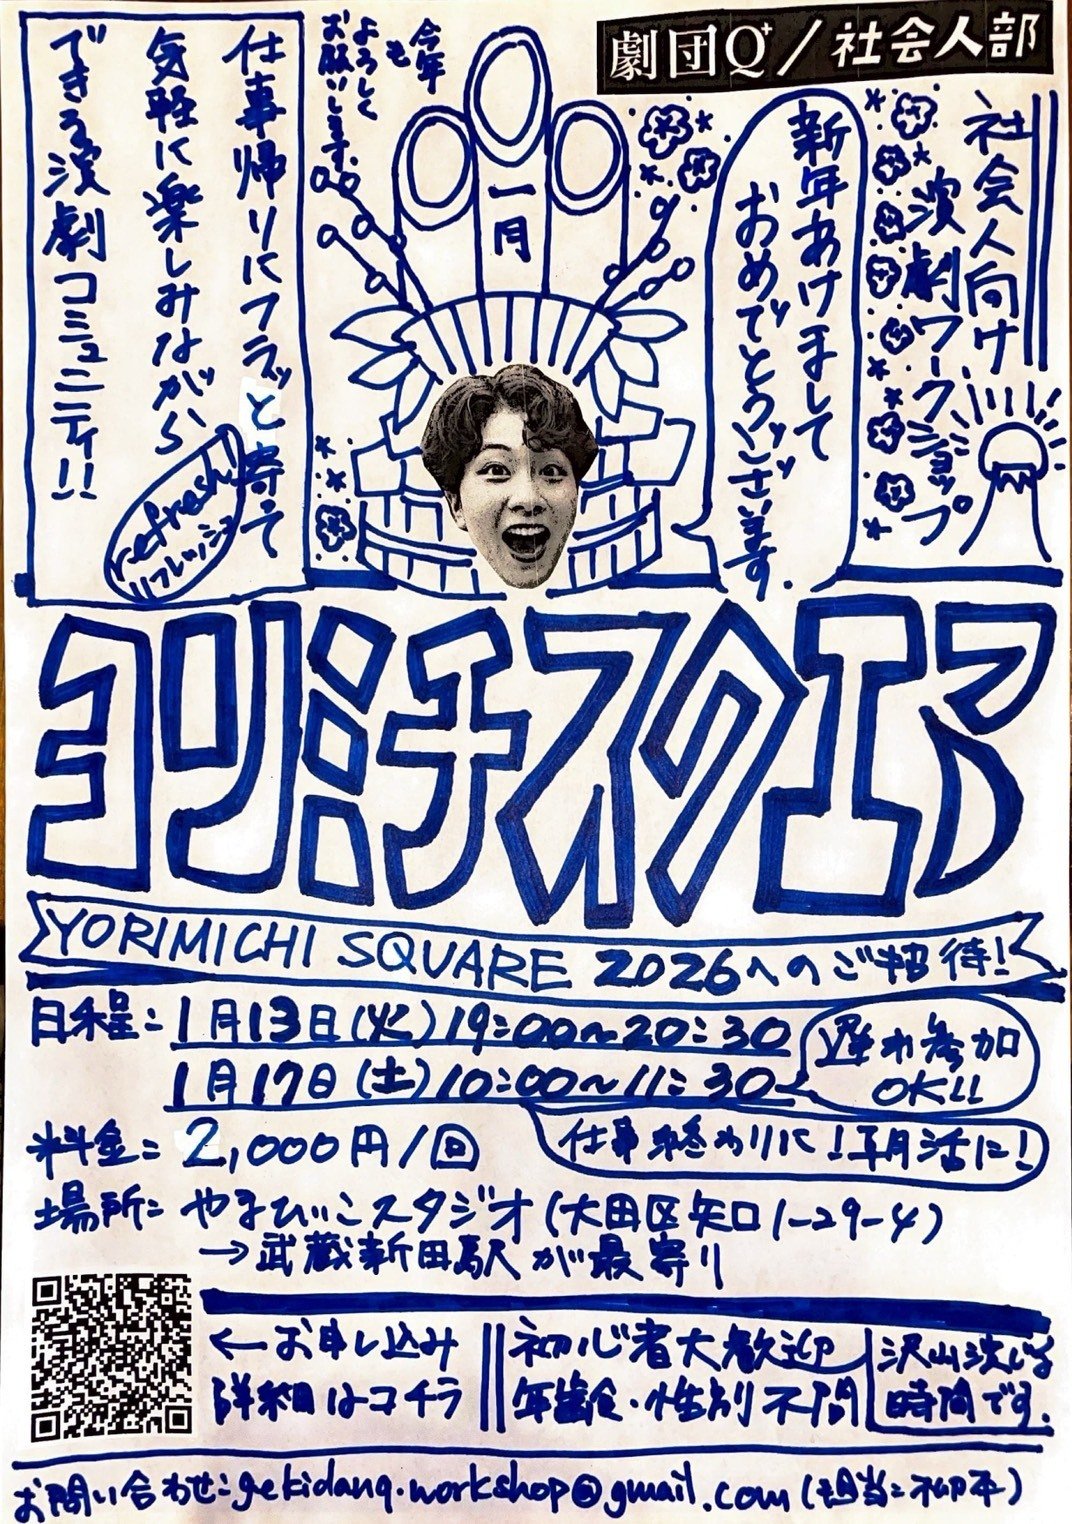 劇団Q+/社会人部
社会人向け
演劇ワークショップ
新年あけまして
おめでとうございます。
今年
も
よろしく
お願いします。
一月
仕事帰りにフラッと寄って
気軽に楽しみながら、
できる演劇コミュニティ!!
refresh!
リフレッシュ
ヨリミチスクエア
YORIMICHI SQUARE 2026へのご招待!
日程: 1月13日(火) 19:00~20:30
1月17日(土) 10:00~11:30
遅れ参加
OK!!
料金: 2,000円/回
仕事終わりに!朝活に!
場所: やまびこスタジオ(大田区矢口1-29-4)
→武蔵新田駅が最寄り
←お申し込み
詳細はコチラ
初心者大歓迎
年齢・性別不問
沢山演じる
時間です。
お問い合わせ: gekidanq.workshop@gmail.com (担当: 柳平)